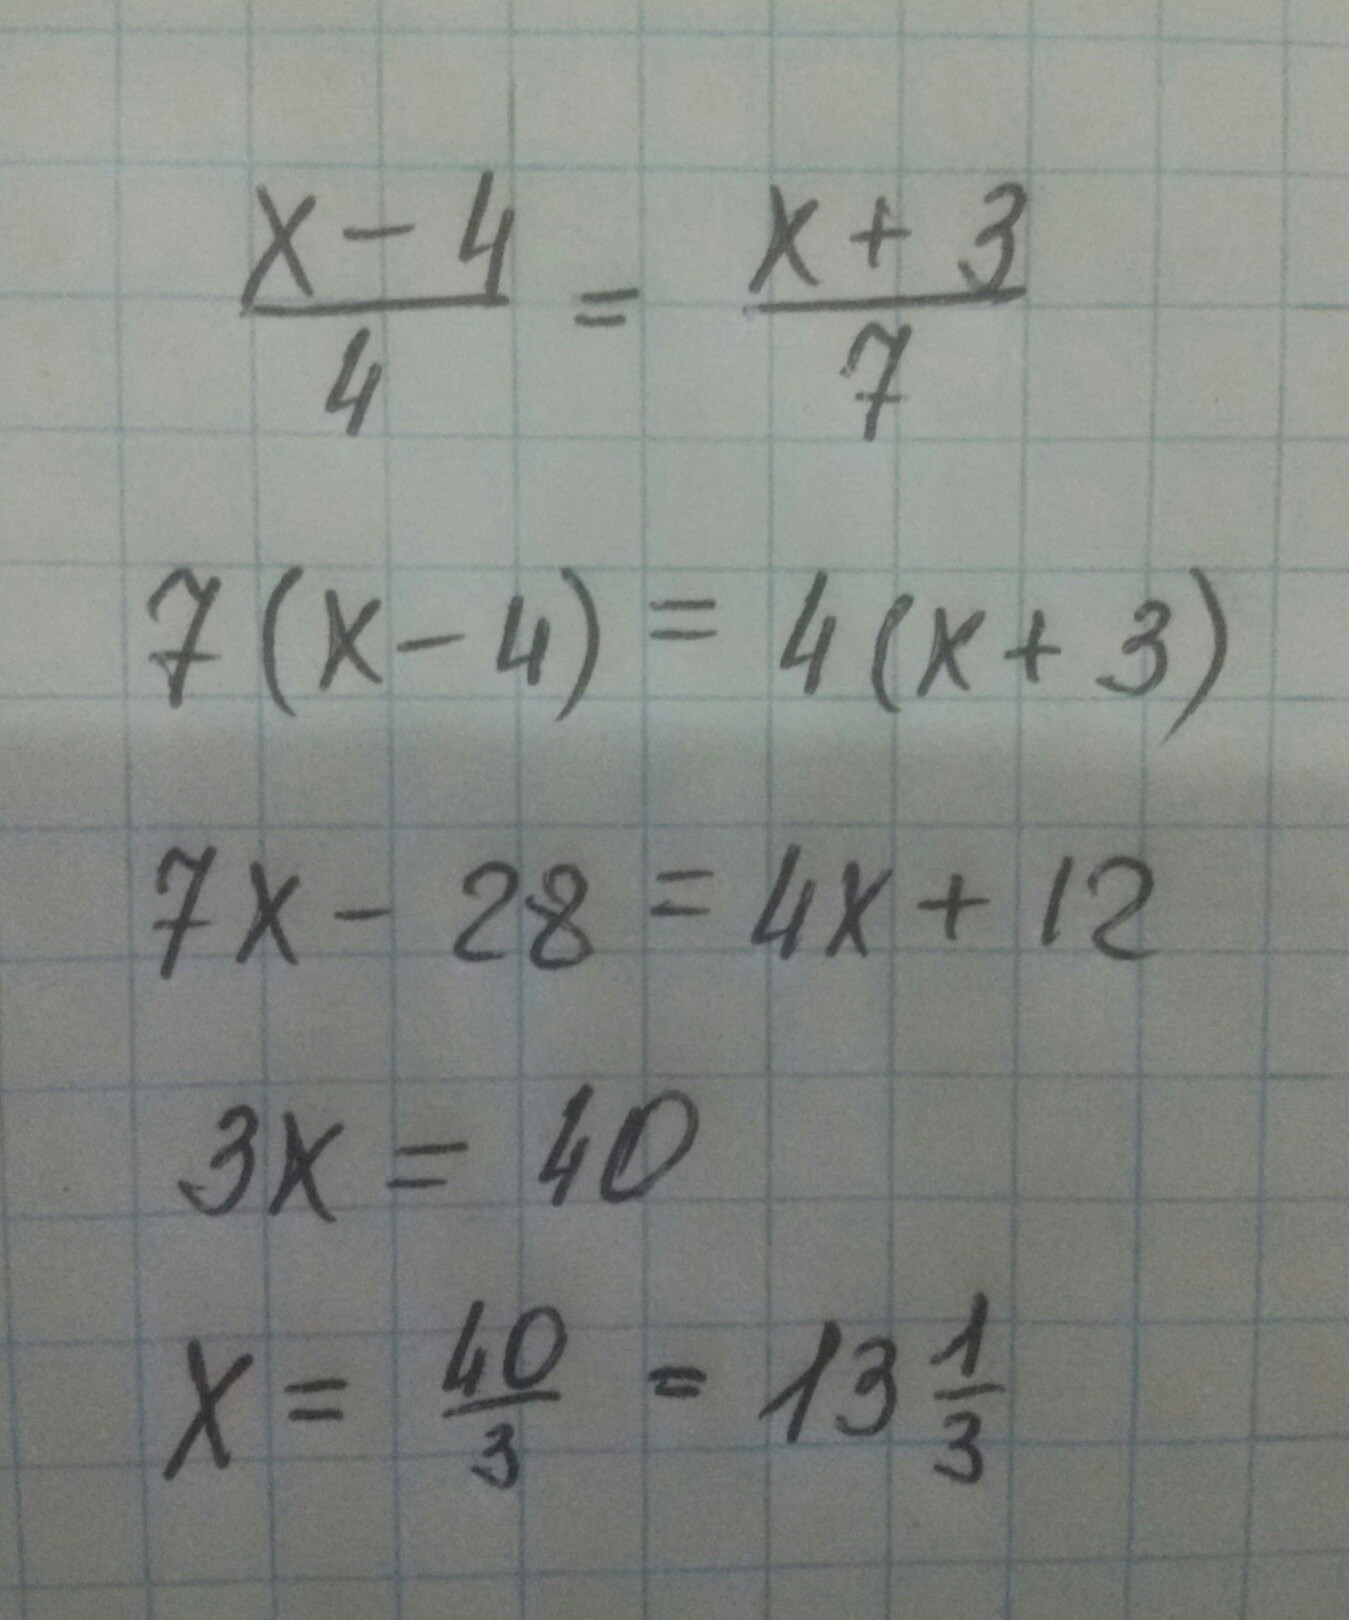 x - 4 / 4 = x + 3 / 7
7(x - 4) = 4(x + 3)
7x - 28 = 4x + 12
3x = 40
x = 40/3 = 13 1/3